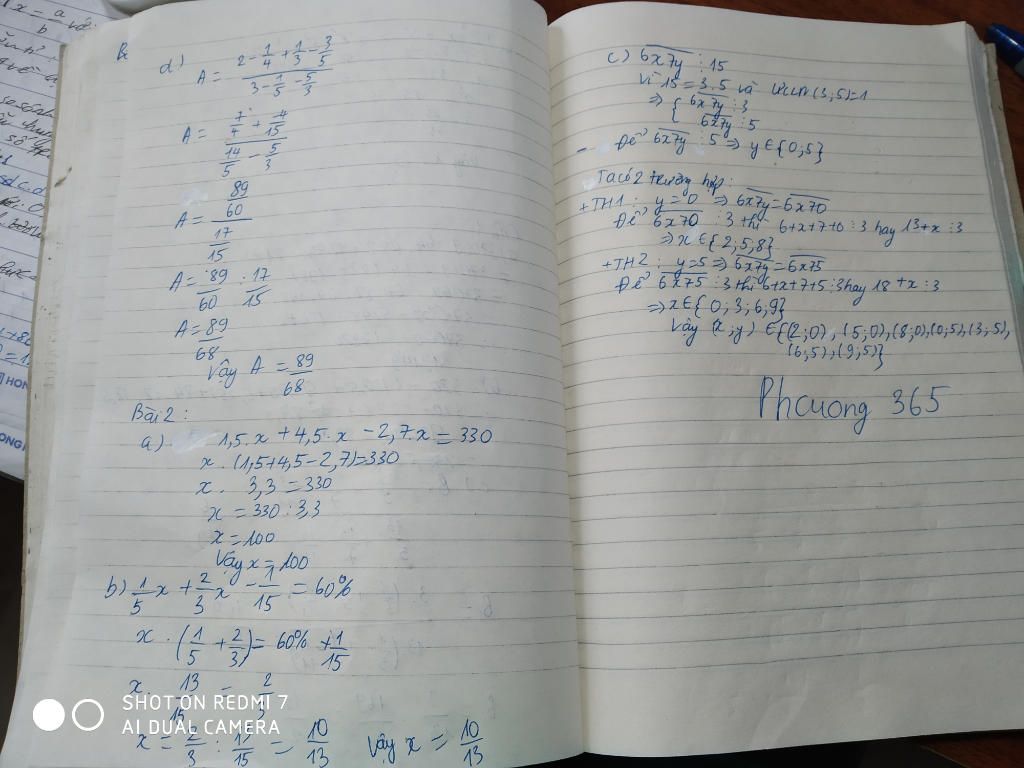 d)
A = (2 - 1/4 + 1/3 - 3/5) / (3 - 1/5 - 5/3)
A = (7/4 + -4/15) / (14/5 - 5/3)
A = (89/60) / (17/15)
A = 89/60 : 17/15
A = 89/68
Vậy A = 89/68
Bài 2:
a) 1,5.x + 4,5.x - 2,7.x = 330
x.(1,5+4,5-2,7)=330
x. 3,3 = 330
x = 330 : 3,3
x = 100
Vậy x = 100
b) 1/5 x + 2/3 x - 1/15 = 60%
x . (1/5 + 2/3) = 60% + 1/15
x. 13/15 = 2/3
x = 2/3 : 13/15 = 10/13 Vậy x = 10/13
SHOT ON REDMI 7
AI DUAL CAMERA
c) 6x7y ⋮ 15
Vì 15 = 3.5 và ƯCLN(3;5)=1
⇒ { 6x7y ⋮ 3
6x7y ⋮ 5
- Để 6x7y ⋮ 5 ⇒ y ∈ {0;5}
Ta có 2 trường hợp:
+TH1: y = 0 ⇒ 6x7y = 6x70
Để 6x70 ⋮ 3 thì 6+x+7+0 ⋮ 3 hay 13+x ⋮ 3
⇒ x ∈ {2;5;8}
+TH2: y=5 ⇒ 6x7y = 6x75
Để 6x75 ⋮ 3 thì 6+x+7+5 ⋮ 3 hay 18 + x ⋮ 3
⇒ x ∈ {0;3;6;9}
Vậy (x;y) ∈ {(2;0), (5;0),(8;0),(0;5),(3;5),
(6;5),(9;5)}
Phương 365